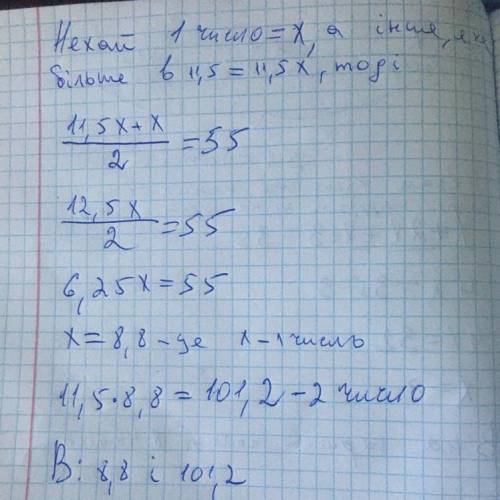 Нехай 1 число = x, а інше, яке
більше в 11,5 = 11,5x, тоді
11,5x + x
2
= 55
12,5x
2
= 55
6,25x = 55
x = 8,8 - це x - 1 число
11,5 · 8,8 = 101,2 - 2 число
В: 8,8 і 101,2